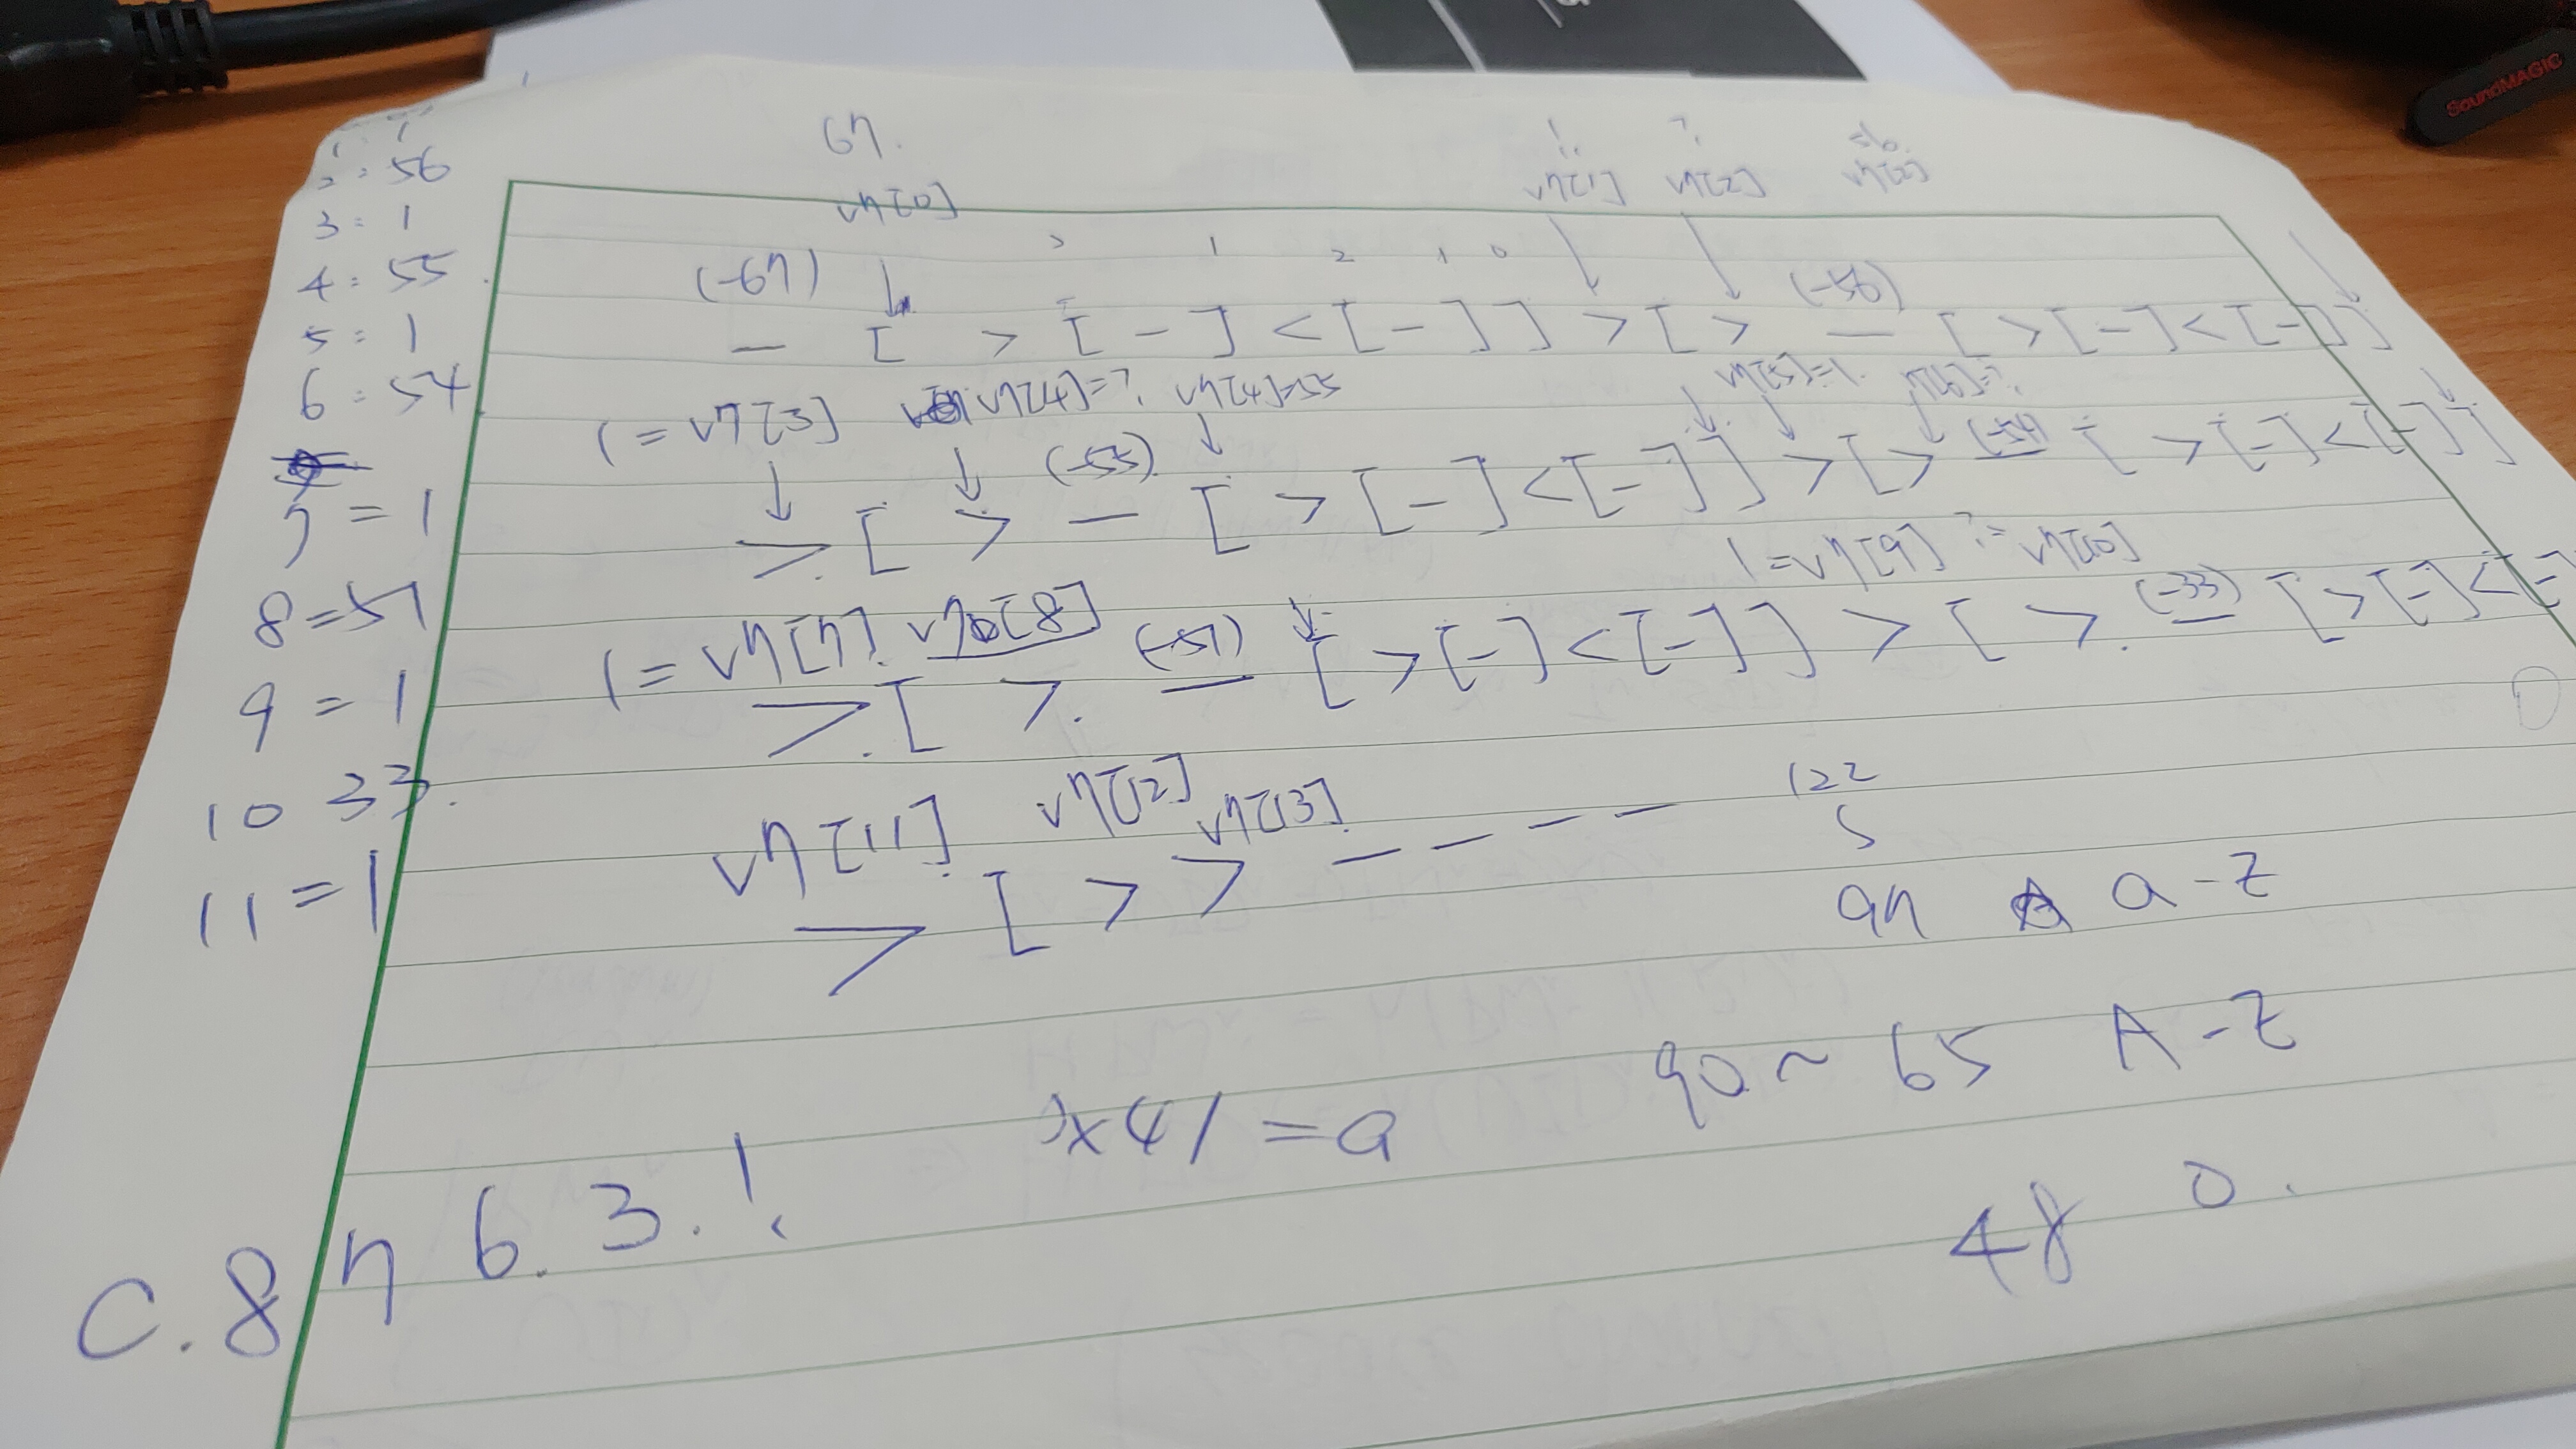 SoundMAGIC
2 = 56
3 = 1
4 = 55
5 = 1
6 = 54
7 = 1
8 = 57
9 = 1
10 33.
11 = 1
67.
v7[0]
v7[1] v7[2]
(-67) (-56)
- [ > [ - ] < [ - ] ] > [ > - [ > [ - ] < [ - ] ]
1 = v7[3] v7[4]=? v7[4]=55 v7[5]=1. v7[6]=?
(-55) (-54)
> [ > - [ > [ - ] < [ - ] ] > [ > - [ > [ - ] < [ - ] ]
1 = v7[9] ?= v7[10]
1 = v7[7]. v7[8] (-57) (-33)
> [ > - [ > [ - ] < [ - ] ] > [ > - [ > [ - ] < [ -
v7[11] v7[12] v7[13]
> [ > > - - - -
122
97 a - z
90 ~ 65 A - Z
x41 = a
48 0.
C. 8 7 6. 3. !